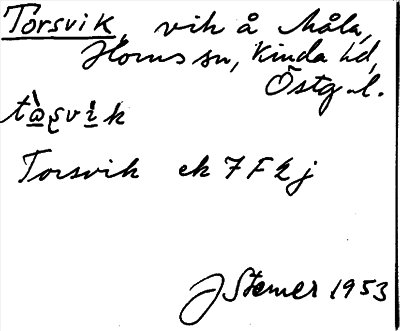 Torsvik, vik å Måla,
Horns sn, Kinda hd,
Östg. l.
Torsvik ek 7 F 2 j
J Stemer 1953